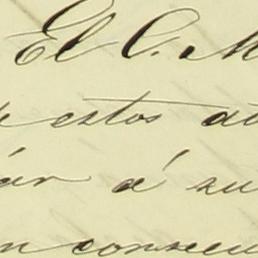 El C. M
e estos at
án á su
n consecu